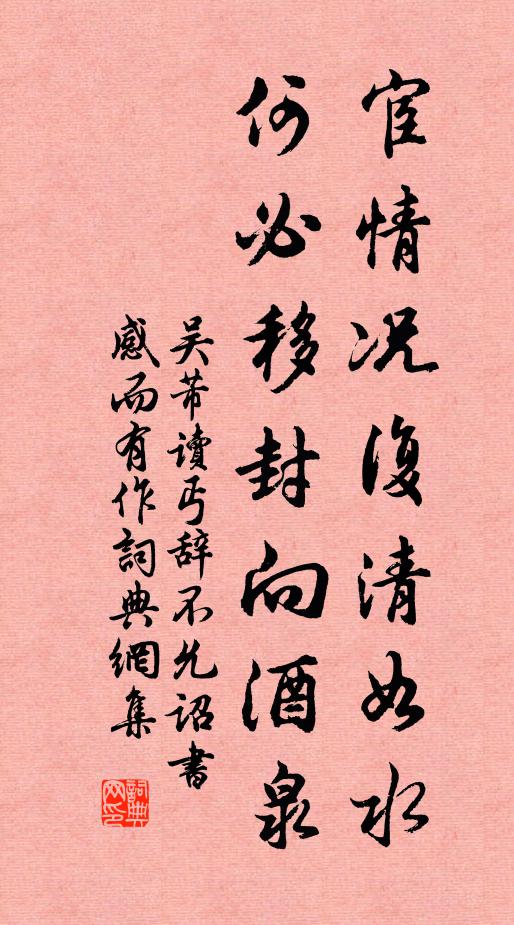 宦情况復清如水
何必移封向酒泉
吴芾讀丐辞不允詔書
感而有作詞典網集
詞典網印